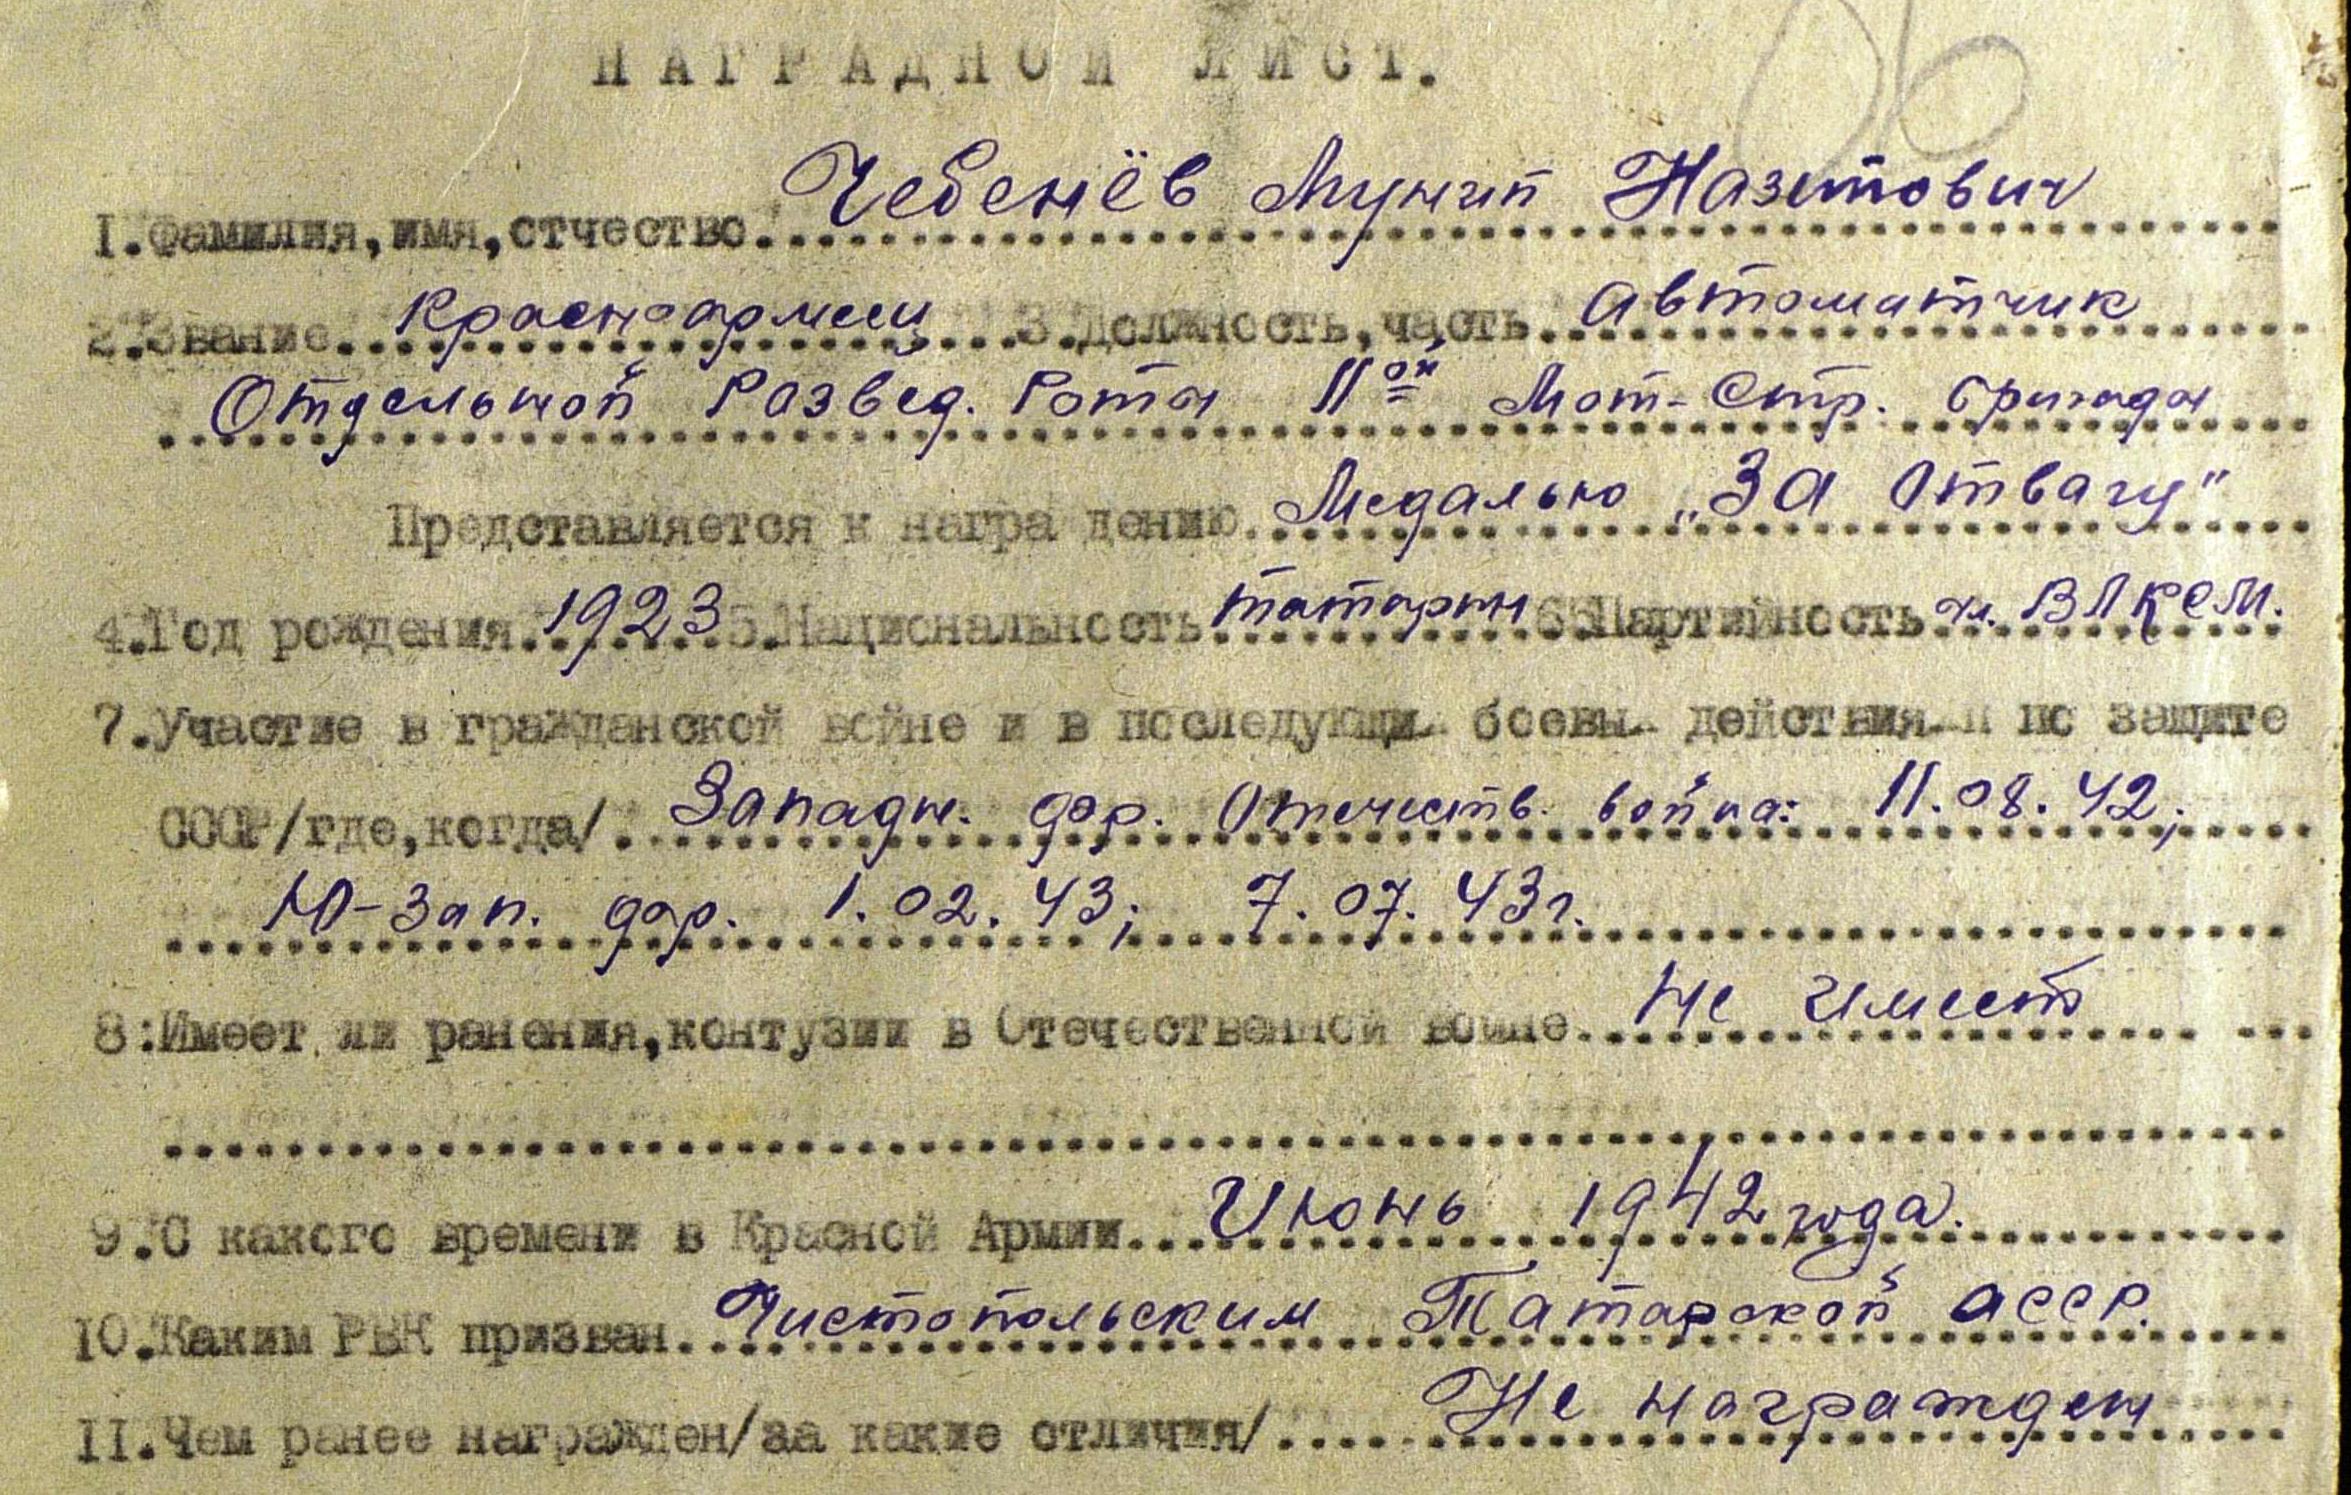 НАГРАДНОЙ ЛИСТ.
1. Фамилия, имя, отчество. Чебенёв Мунип Назипович
2. Звание. Красноармеец 3. Должность, часть. Автоматчик
Отдельной Развед. Роты 11ой Мот-Стр. бригады
Представляется к награ дению. Медалью „За Отвагу"
4. Год рождения. 1923 5. Национальность татарин 6. Партийность чл. ВЛКСМ.
7. Участие в гражданской войне и в последующи боевы действия и по защите
СССР/где, когда/. Западн. фр. Отечеств. война: 11.08.42;
Ю-Зап. фр. 1.02.43; 7.07.43г.
8: Имеет ли ранения, контузии в Отечественной войне. Не имеет
9. С какого времени в Красной Армии... Июнь 1942 года.
10. Каким РВК призван. Чистопольским Татарской АССР.
11. Чем ранее награжден/за какие отличия/. Не награжден